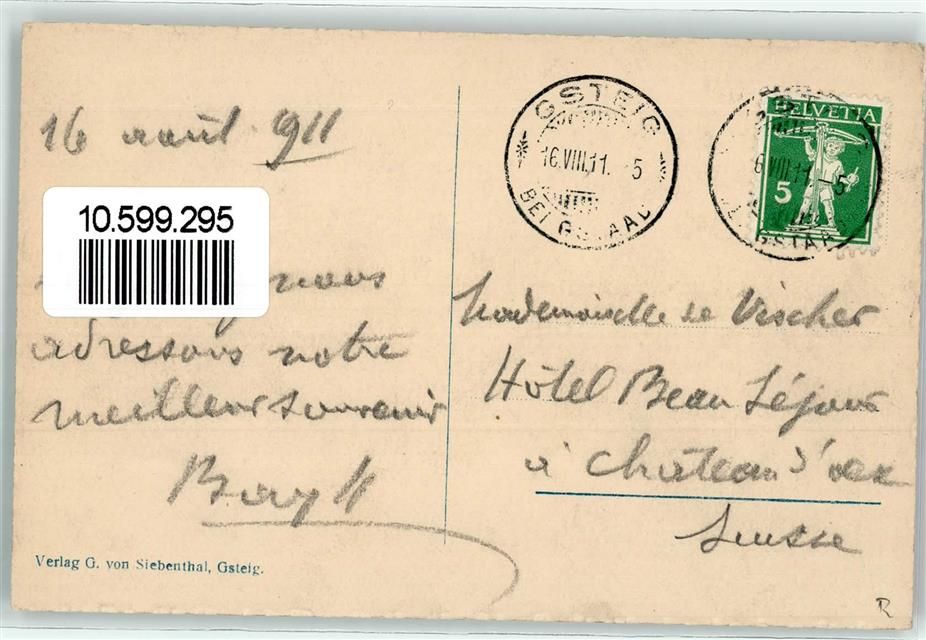 16 août 1911
10.599.295
nous
adressons notre
meilleur souvenir
Verlag G. von Siebenthal, Gsteig.
GSTEIG
16.VIII.11. 5
BEI GSTAAD
HELVETIA
5
VIII.11.-5
GSTAA
Mademoiselle de Vischer
Hôtel Beau Séjour
à Château d'oex
Suisse
R